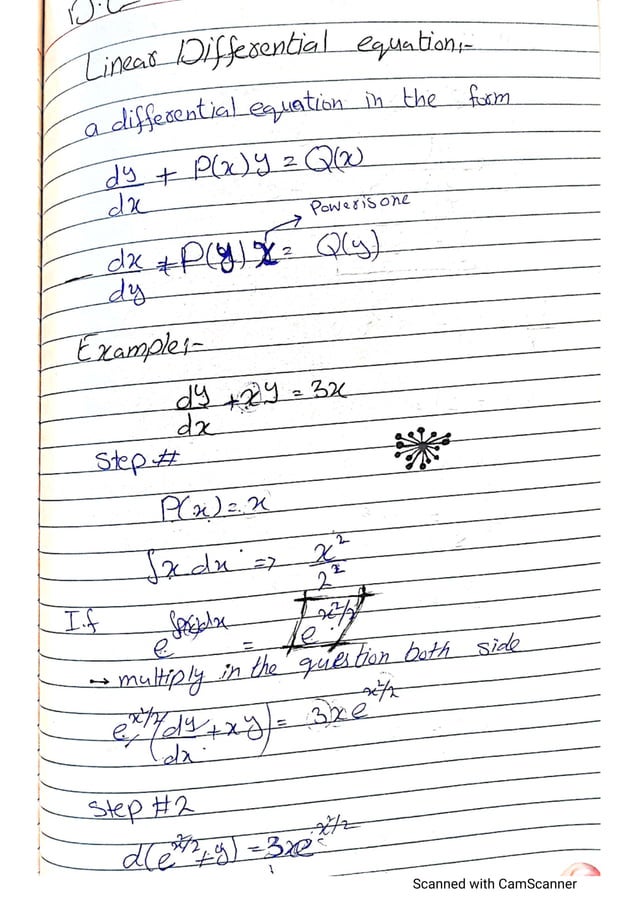 D.E
Linear Differential equation:-
a differential equation in the form
dy/dx + P(x)y = Q(x)
Power is one
dx/dy + P(y) x = Q(y)
Example:-
dy/dx + xy = 3x
Step #
P(x) = x
∫x dx => x²/2
I.f e^∫P(x)dx = e^x²/2
→ multiply in the question both side
e^x²/2 (dy/dx + xy) = 3xe^x²/2
Step #2
d(e^x²/2 + y) = 3xe^x²/2
Scanned with CamScanner